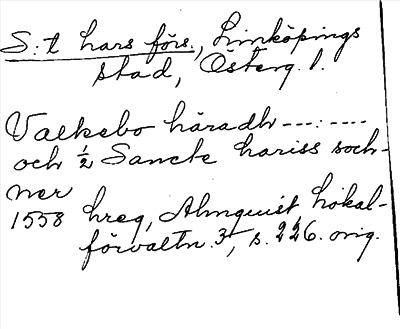 S:t Lars förs., Linköpings
stad, Österg. l.
Valkebo häradh ---:----
och ½ Sancte Lariss soch-
ner
1558 hreg, Almquist Lokal-
förvaltn. 3, s. 226. orig.